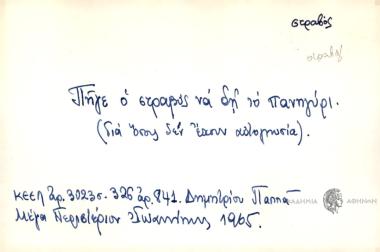 στραβός
στραβός
Πῆγε ὁ στραβός νά δῇ τό πανηγύρι.
(Γιά ὅσους δέν ἔχουν αὐτογνωσία).
ΚΕΕΛ ἀρ. 3023 σ. 326 ἀρ. 841. Δημητρίου Παππᾶ
Μέγα Περιστέριον Ἰωαννίνης 1965.
ΑΔΗΜΙΑ ΑΘΗΝΩΝ